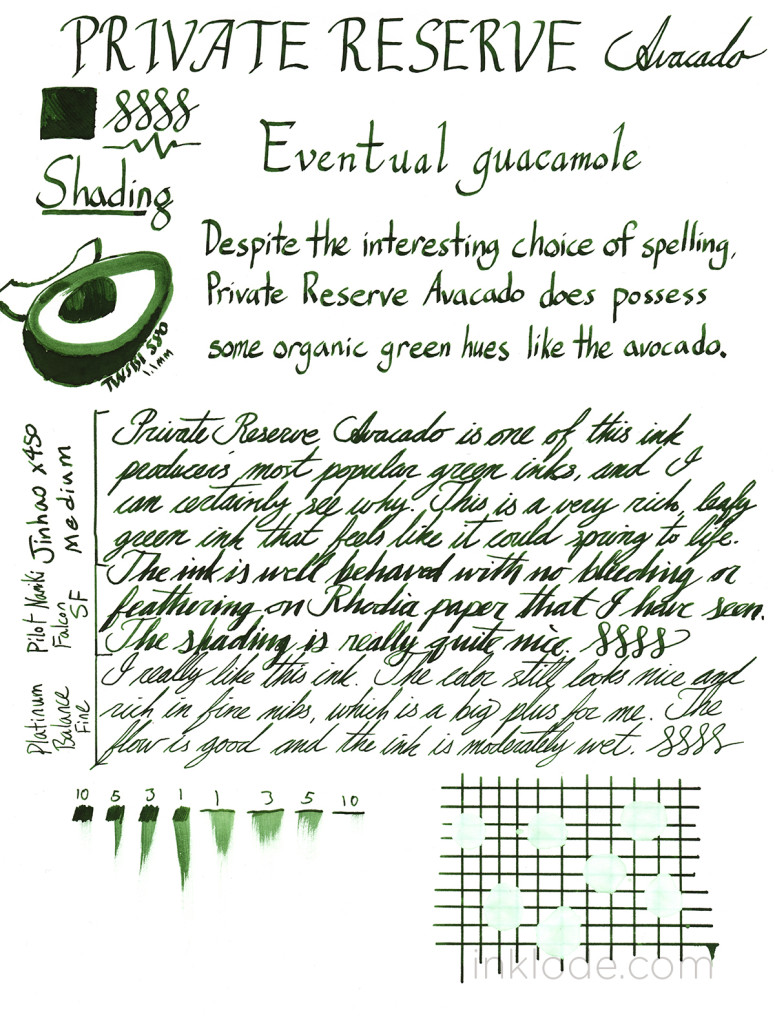 PRIVATE RESERVE Avacado
Shading
Eventual guacamole
Despite the interesting choice of spelling,
Private Reserve Avacado does possess
some organic green hues like the avocado.
TWSBI 580
1.1mm
Jinhao x450
Medium
Private Reserve Avacado is one of this ink
producers' most popular green inks, and I
can certainly see why. This is a very rich, leafy
green ink that feels like it could spring to life.
Pilot Namiki
Falcon
SF
The ink is well behaved with no bleeding or
feathering on Rhodia paper that I have seen.
The shading is really quite nice.
Platinum
Balance
Fine
I really like this ink. The color still looks nice and
rich in fine nibs, which is a big plus for me. The
flow is good and the ink is moderately wet.
10 5 3 1 1 3 5 10
inklode.com